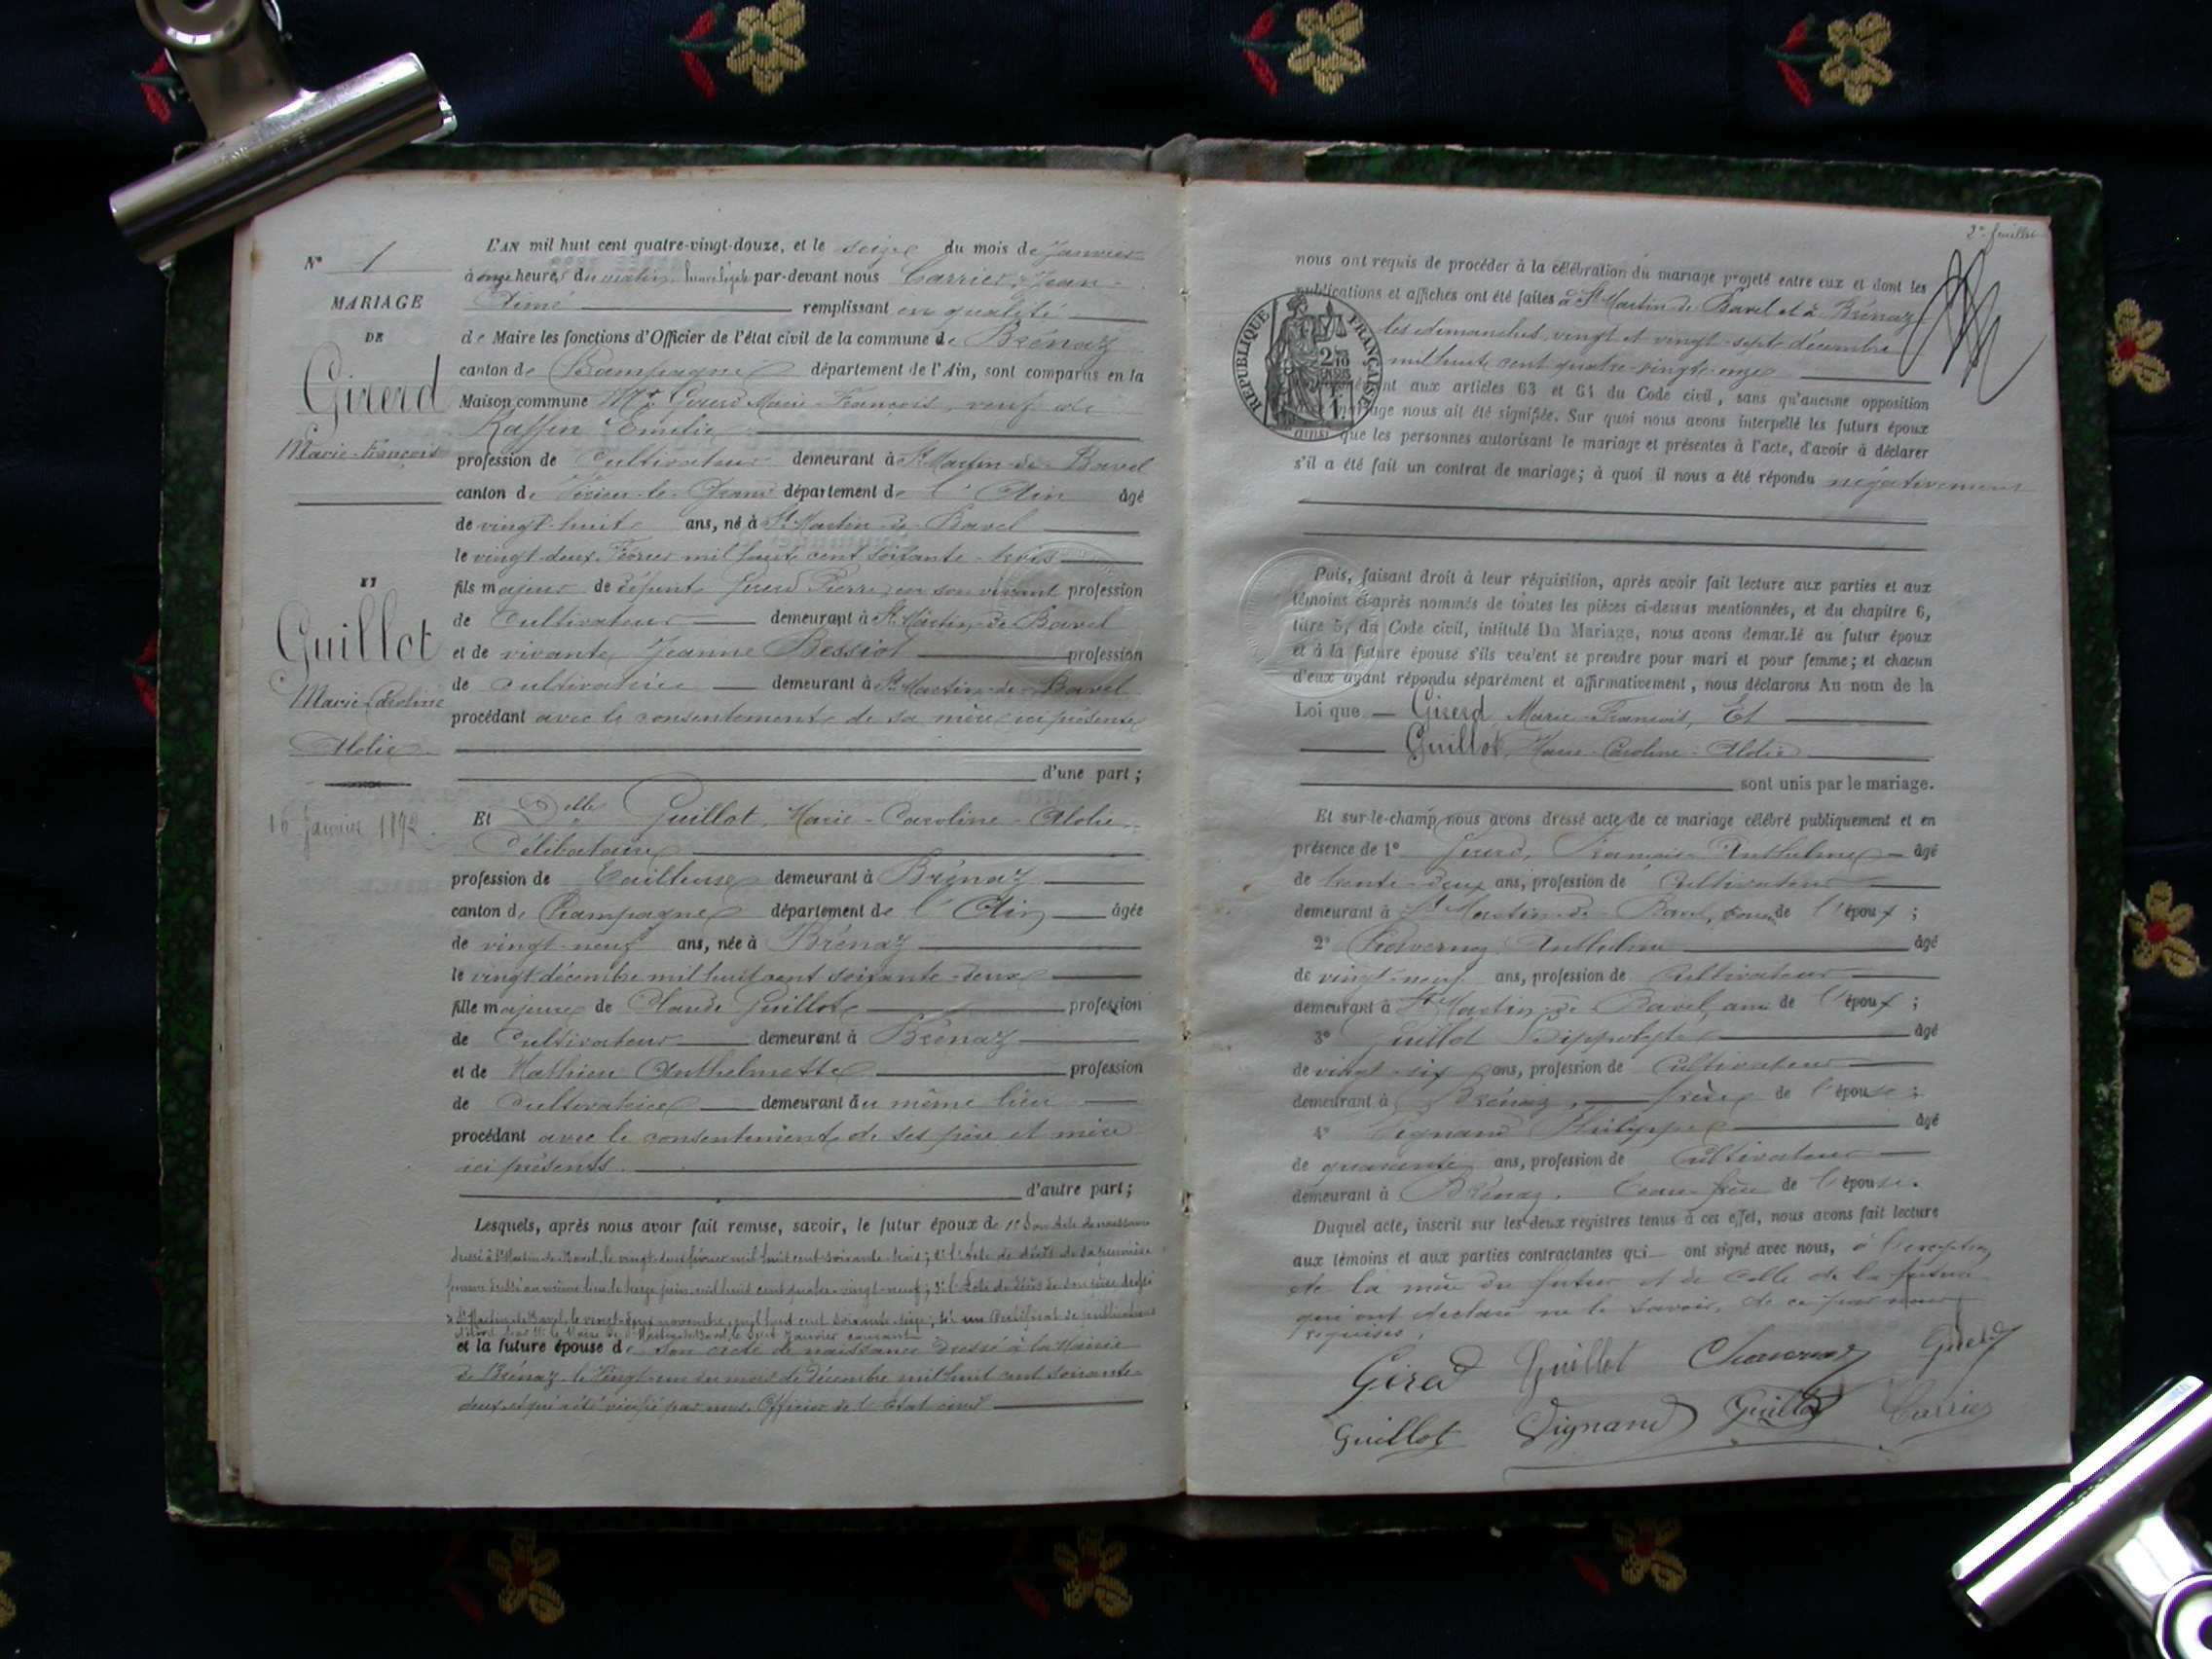 N° 1
MARIAGE
DE
Girerd
Marie-François
ET
Guillot
Marie-Caroline
Alolie
16 Janvier 1892.
L'AN mil huit cent quatre-vingt-douze, et le seize du mois de Janvier
à onze heures du matin, heure légale par-devant nous Carrier, Jean-
Aimé remplissant en qualité
de Maire les fonctions d'Officier de l'état civil de la commune de Brénaz
canton de Champagne département de l'Ain, sont comparus en la
Maison commune Mr. Girerd Marie-François, veuf de
Raffin Emélie
profession de Cultivateur demeurant à St Martin-de-Bavel
canton de Virieu-le-Grand département de l'Ain âgé
de vingt-huit ans, né à St Martin-de-Bavel
le vingt-deux Février mil huit cent soixante-trois
fils majeur de défunt Girerd Pierre, en son vivant profession
de Cultivateur demeurant à St Martin-de-Bavel
et de vivante Jeanne Bessiot profession
de cultivatrice demeurant à St Martin-de-Bavel
procédant avec le consentement de sa mère ici présente
d'une part ;
Et Delle Guillot, Marie-Caroline-Alolie
Célibataire
profession de Tailleuse demeurant à Brénaz
canton de Champagne département de l'Ain âgée
de vingt-neuf ans, née à Brénaz
le vingt décembre mil huit cent soixante-deux
fille majeure de Claude Guillot profession
de Cultivateur demeurant à Brénaz
et de Mathieu Anthelmette profession
de Cultivatrice demeurant au même lieu
procédant avec le consentement de ses père et mère
ici présents.
d'autre part ;
Lesquels, après nous avoir fait remise, savoir, le futur époux de 1° Son Acte de naissance
dressé à St Martin-de-Bavel, le vingt-deux février mil huit cent soixante-trois ; 2° l'Acte de décès de sa première
femme dressé au même lieu, le treize juin mil huit cent quatre-vingt-neuf ; 3° l'Acte de décès de son père dressé
à St Martin-de-Bavel, le vingt-deux novembre mil huit cent soixante-seize ; 4° un Certificat de publications
délivré par Mr le Maire de St Martin-de-Bavel, le Janvier courant
et la future épouse de son acte de naissance dressé à la Mairie
de Brénaz, le vingt-un du mois de décembre mil huit cent soixante-
deux, et qui a été vérifié par nous Officier de l'Etat civil
2e feuillet
nous ont requis de procéder à la célébration du mariage projeté entre eux et dont les
publications et affiches ont été faites à St Martin-de-Bavel et à Brénaz
les dimanches, vingt et vingt-sept décembre
mil huit cent quatre-vingt-onze
aux articles 63 et 64 du Code civil, sans qu'aucune opposition
mariage nous ait été signifiée. Sur quoi nous avons interpellé les futurs époux
ainsi que les personnes autorisant le mariage et présentes à l'acte, d'avoir à déclarer
s'il a été fait un contrat de mariage ; à quoi il nous a été répondu négativement
RÉPUBLIQUE FRANÇAISE
Puis, faisant droit à leur réquisition, après avoir fait lecture aux parties et aux
témoins ci-après nommés de toutes les pièces ci-dessus mentionnées, et du chapitre 6,
titre 5, du Code civil, intitulé Du Mariage, nous avons demandé au futur époux
et à la future épouse s'ils veulent se prendre pour mari et pour femme ; et chacun
d'eux ayant répondu séparément et affirmativement, nous déclarons Au nom de la
Loi que Girerd, Marie-François, Et
Guillot, Marie-Caroline-Alolie
sont unis par le mariage.
Et sur-le-champ nous avons dressé acte de ce mariage célébré publiquement et en
présence de 1° Girerd, François-Anthelme âgé
de trente-deux ans, profession de Cultivateur
demeurant à St Martin-de-Bavel, de l'époux ;
2° Anthelme âgé
de vingt-neuf ans, profession de Cultivateur
demeurant à St Martin-de-Bavel, ami de l'époux ;
3° Guillot Hippolyte âgé
de vingt-six ans, profession de Cultivateur
demeurant à Brénaz, frère de l'épouse ;
4° Vignand Philippe âgé
de quarante ans, profession de Cultivateur
demeurant à Brénaz, beau-frère de l'épouse.
Duquel acte, inscrit sur les deux registres tenus à cet effet, nous avons fait lecture
aux témoins et aux parties contractantes qui ont signé avec nous, à l'exception
de la mère du futur et de celle de la future
qui ont déclaré ne le savoir, de ce par nous
requises.
Girerd Guillot Girerd
Guillot Vignand Guillot Carrier